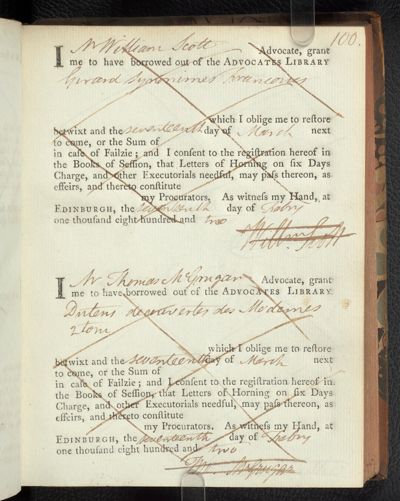 100.
I Mr William Scott Advocate, grant
me to have borrowed out of the ADVOCATES LIBRARY
Girard Synonimes Francoises
which I oblige me to reſtore
betwixt and the seventeenth day of March next
to come, or the Sum of
in caſe of Failzie; and I conſent to the regiſtration hereof in
the Books of Seſſion, that Letters of Horning on ſix Days
Charge, and other Executorials needful, may paſs thereon, as
effeirs, and thereto conſtitute
my Procurators. As witneſs my Hand, at
EDINBURGH, the seventeenth day of Febry
one thouſand eight hundred and two
Will^m Scott
I Mr Thomas McGrugar Advocate, grant
me to have borrowed out of the ADVOCATES LIBRARY
Dutens decouvertes des Modernes
2 tom
which I oblige me to reſtore
betwixt and the seventeenth day of March next
to come, or the Sum of
in caſe of Failzie; and I conſent to the regiſtration hereof in
the Books of Seſſion, that Letters of Horning on ſix Days
Charge, and other Executorials needful, may paſs thereon, as
effeirs, and thereto conſtitute
my Procurators. As witneſs my Hand, at
EDINBURGH, the seventeenth day of Febry
one thouſand eight hundred and two
Tho. McGrugar